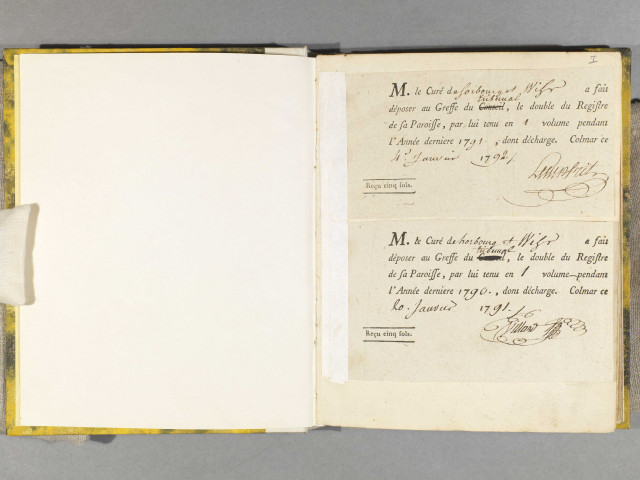 I
M. le Curé de horbourg et Wihr a fait
tribunal
déposer au Greffe du Conseil, le double du Regiſtre
de ſa Paroiſſe, par lui tenu en 1 volume pendant
l'Année derniere 1791., dont décharge. Colmar ce
4. Janvier 1792.
Reçu cinq ſols.
M. le Curé de horbourg et Wihr a fait
tribunal
déposer au Greffe du Conseil, le double du Regiſtre
de ſa Paroiſſe, par lui tenu en 1 volume pendant
l'Année derniere 1790., dont décharge. Colmar ce
20. Janvier 1791.
Reçu cinq ſols.